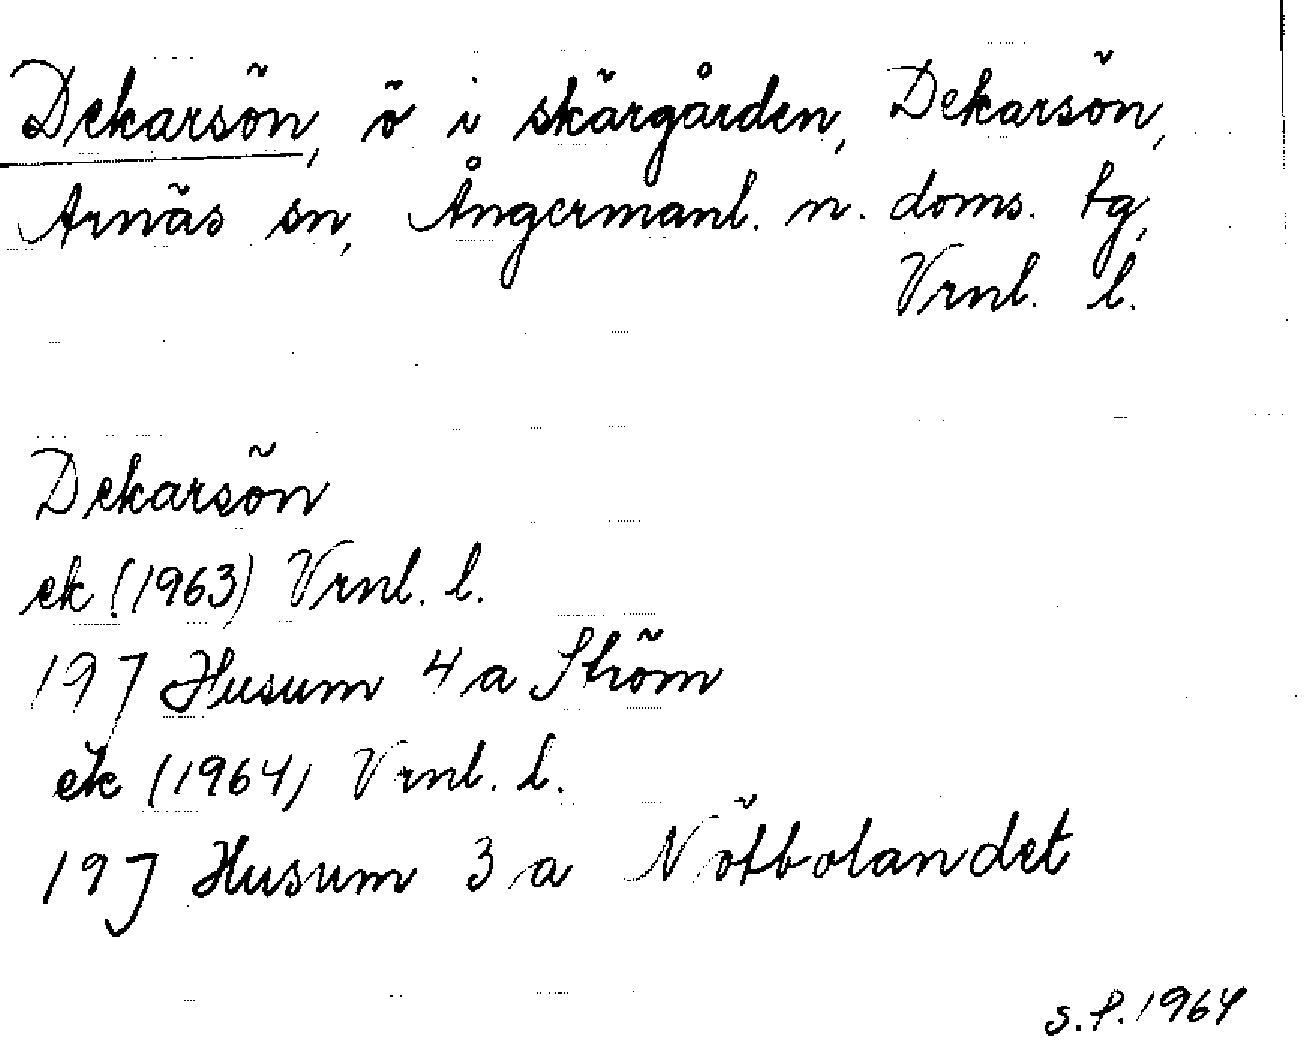 Dekarsön, ö i skärgården, Dekarsön,
Arnäs sn, Ångermanl. n. doms. tg,
Vrnl. l.
Dekarsön
ek (1963) Vrnl. l.
19J Husum 4 a Ström
ek (1964) Vrnl. l.
19J Husum 3 a Nötbolandet
s.f. 1964